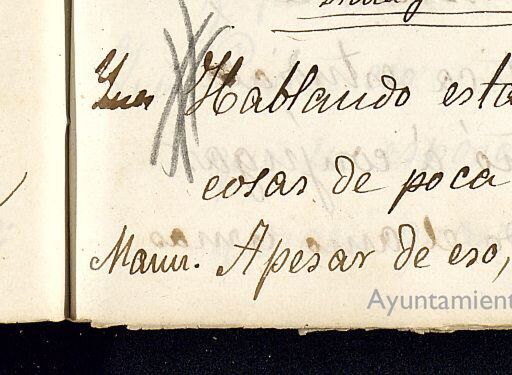 Ines Hablando esta
cosas de poca
Manu. Apesar de eso,
Ayuntamient